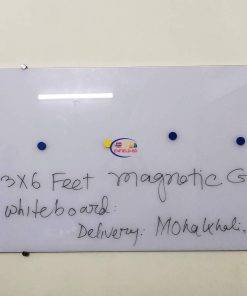 3x6 Feet magnetic G
Whiteboard:
Delivery: Mohakhali.